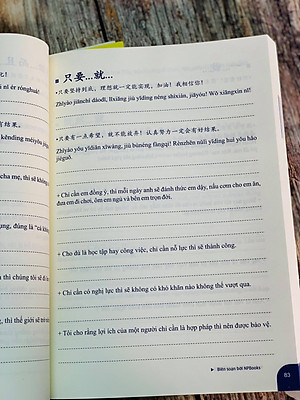 只要...就...
• 只要坚持到底，理想就一定能实现。加油！我相信你！
Zhǐyào jiānchí dàodǐ, lǐxiǎng jiù yīdìng néng shíxiàn, jiāyóu! Wǒ xiāngxìn nǐ!
• 只要有一点希望，就不能放弃！认真努力一定会有好结果。
Zhǐyào yǒu yīdiǎn xīwàng, jiù bùnéng fàngqì! Rènzhēn nǔlì yīdìng huì yǒu hǎo
jiéguǒ.
+ Chỉ cần em đồng ý, thì mỗi ngày anh sẽ đánh thức em dậy, nấu cơm cho em ăn,
đưa em đi chơi, ôm em ngủ và bên em trọn đời.
+ Cho dù là học tập hay công việc, chỉ cần nỗ lực thì sẽ thành công.
+ Chỉ cần có nghị lực thì sẽ không có khó khăn nào không thể vượt qua.
+ Tôi cho rằng lợi ích của một người chỉ cần là hợp pháp thì nên được bảo vệ.
Biên soạn bởi NPBooks
83
nǐ ér rónghuá!
kěndìng méiyǒu
cha mẹ, thì sẽ không
dụng, đúng là "cá không
ì thì chúng tôi sẽ đi
g, thì thế giới sẽ trở